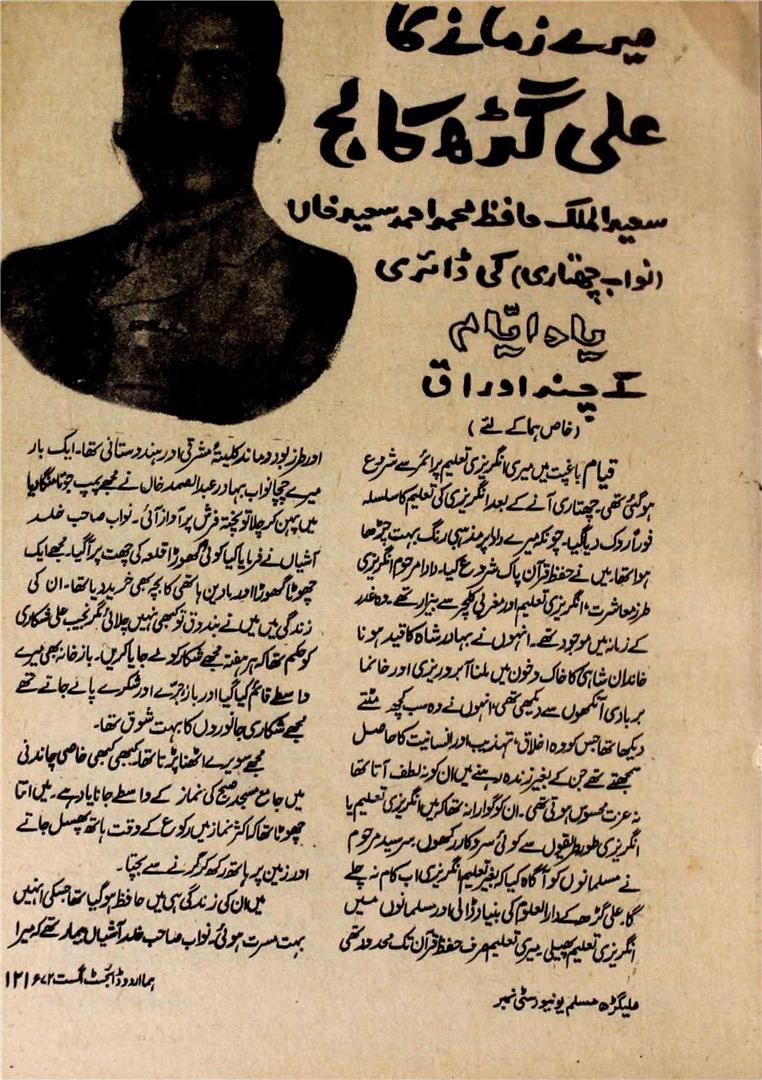 میرے زمانے کا
علی گڑھ کالج
سعید الملک حافظ محمد احمد سعید خاں
(نواب چھتاری) کی ڈائری
یادِ ایّام
کے چند اوراق
(خاص ہما کے لئے)
قیام باغپت میں میری انگریزی تعلیم پرائمر سے شروع
ہو گئی تھی۔ چھتاری آنے کے بعد انگریزی کی تعلیم کا سلسلہ
فوراً روک دیا گیا۔ چونکہ میرے دادا پر مذہبی رنگ بہت چڑھا
ہوا تھا۔ میں نے حفظ قرآن پاک شروع کیا۔ دادا مرحوم انگریزی
طرز معاشرت، انگریزی تعلیم اور مغربی کلچر سے بیزار تھے۔ وہ غدر
کے زمانہ میں موجود تھے۔ انہوں نے بہادر شاہ کا قید ہونا
خاندان شاہی کا خاک و خون میں ملنا آبروریزی اور خانما
بربادی آنکھوں سے دیکھی تھی، انہوں نے وہ سب کچھ مٹتے
دیکھا تھا جس کو وہ اخلاق، تہذیب اور انسانیت کا حاصل
سمجھتے تھے جن کے بغیر زندہ رہنے میں ان کو نہ لطف آتا تھا
نہ عزت محسوس ہوتی تھی۔ ان کو گوارا نہ تھا کہ میں انگریزی تعلیم یا
انگریزی طور طریقوں سے کوئی سروکار رکھوں۔ سر سید مرحوم
نے مسلمانوں کو آگاہ کیا کہ بغیر تعلیم انگریزی اب کام نہ چلے
گا۔ علی گڑھ کے دارالعلوم کی بنیاد ڈالی اور مسلمانوں میں
انگریزی تعلیم پھیلی۔ میری تعلیم صرف حفظ قرآن تک محدود تھی
اور طرز بود و ماند کلیتۂ مشرقی اور ہندوستانی تھا۔ ایک بار
میرے چچا نواب بہادر عبدالصمد خاں نے مجھے پمپ جوتا منگا دیا
میں پہن کر چلا تو پختہ فرش پر آواز آئی۔ نواب صاحب خلد
آشیاں نے فرمایا کیا کوئی گھوڑا قلعہ کی چھت پر آ گیا۔ مجھے ایک
چھوٹا گھوڑا اور بادین ہاتھی کا بچہ بھی خرید دیا تھا۔ ان کی
زندگی میں میں نے بندوق تو کبھی نہیں چلائی مگر نجیب علی شکاری
کو حکم تھا کہ ہر ہفتہ مجھے شکار کو لے جایا کریں۔ باز خانہ بھی میرے
واسطے قائم کیا گیا اور باز جرّے اور شکرے پالے جاتے تھے
مجھے شکاری جانوروں کا بہت شوق تھا۔
مجھے سویرے اٹھنا پڑتا تھا۔ کبھی کبھی خاصی چاندنی
میں جامع مسجد صبح کی نماز کے واسطے جانا یاد ہے۔ میں اتنا
چھوٹا تھا کہ اکثر نماز میں رکوع کے وقت ہاتھ پھسل جاتے
اور زمین پر ہاتھ رکھ کر گرنے سے بچتا۔
میں ان کی زندگی ہی میں حافظ ہو گیا تھا جسکی انہیں
بہت مسرت ہوئی۔ نواب صاحب خلد آشیاں بیمار تھے کہ میرا
علیگڑھ مسلم یونیورسٹی نمبر
ہما اردو ڈائجسٹ اگست ۷۲ء ۱۲۱